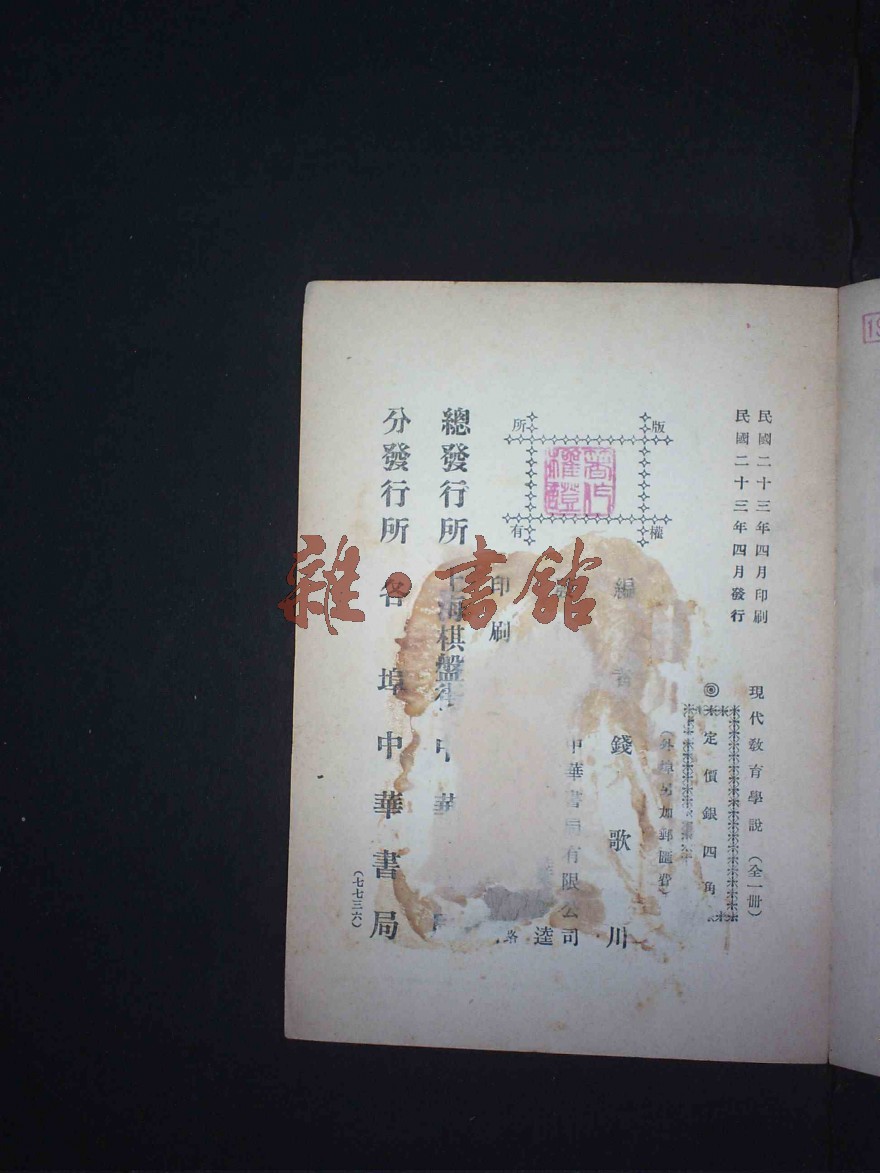 民國二十三年四月印刷
民國二十三年四月發行
現代教育學說（全一冊）
◎定價銀四角
（外埠另加郵匯費）
版權所有
著作權證
編者錢歌川
中華書局有限公司
逵
印刷
路
總發行所 上海棋盤街 中華
分發行所 各埠中華書局
（七七三六）
雜·書館
19